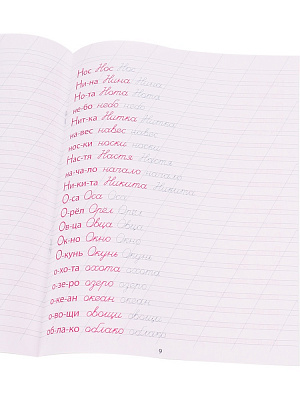 Нос Нос Нос
Ни-на Нина Нина
Но-та Нота Нота
не-бо небо небо
Нит-ка Нитка Нитка
на-вес навес навес
нос-ки носки носки
Нас-тя Настя Настя
на-ча-ло начало начало
Ни-ки-та Никита Никита
О-са Оса Оса
О-рёл Орёл Орёл
Ов-ца Овца Овца
Ок-но Окно Окно
О-кунь Окунь Окунь
о-хо-та охота охота
о-зе-ро озеро озеро
о-ке-ан океан океан
о-во-щи овощи овощи
об-ла-ко облако облако
9